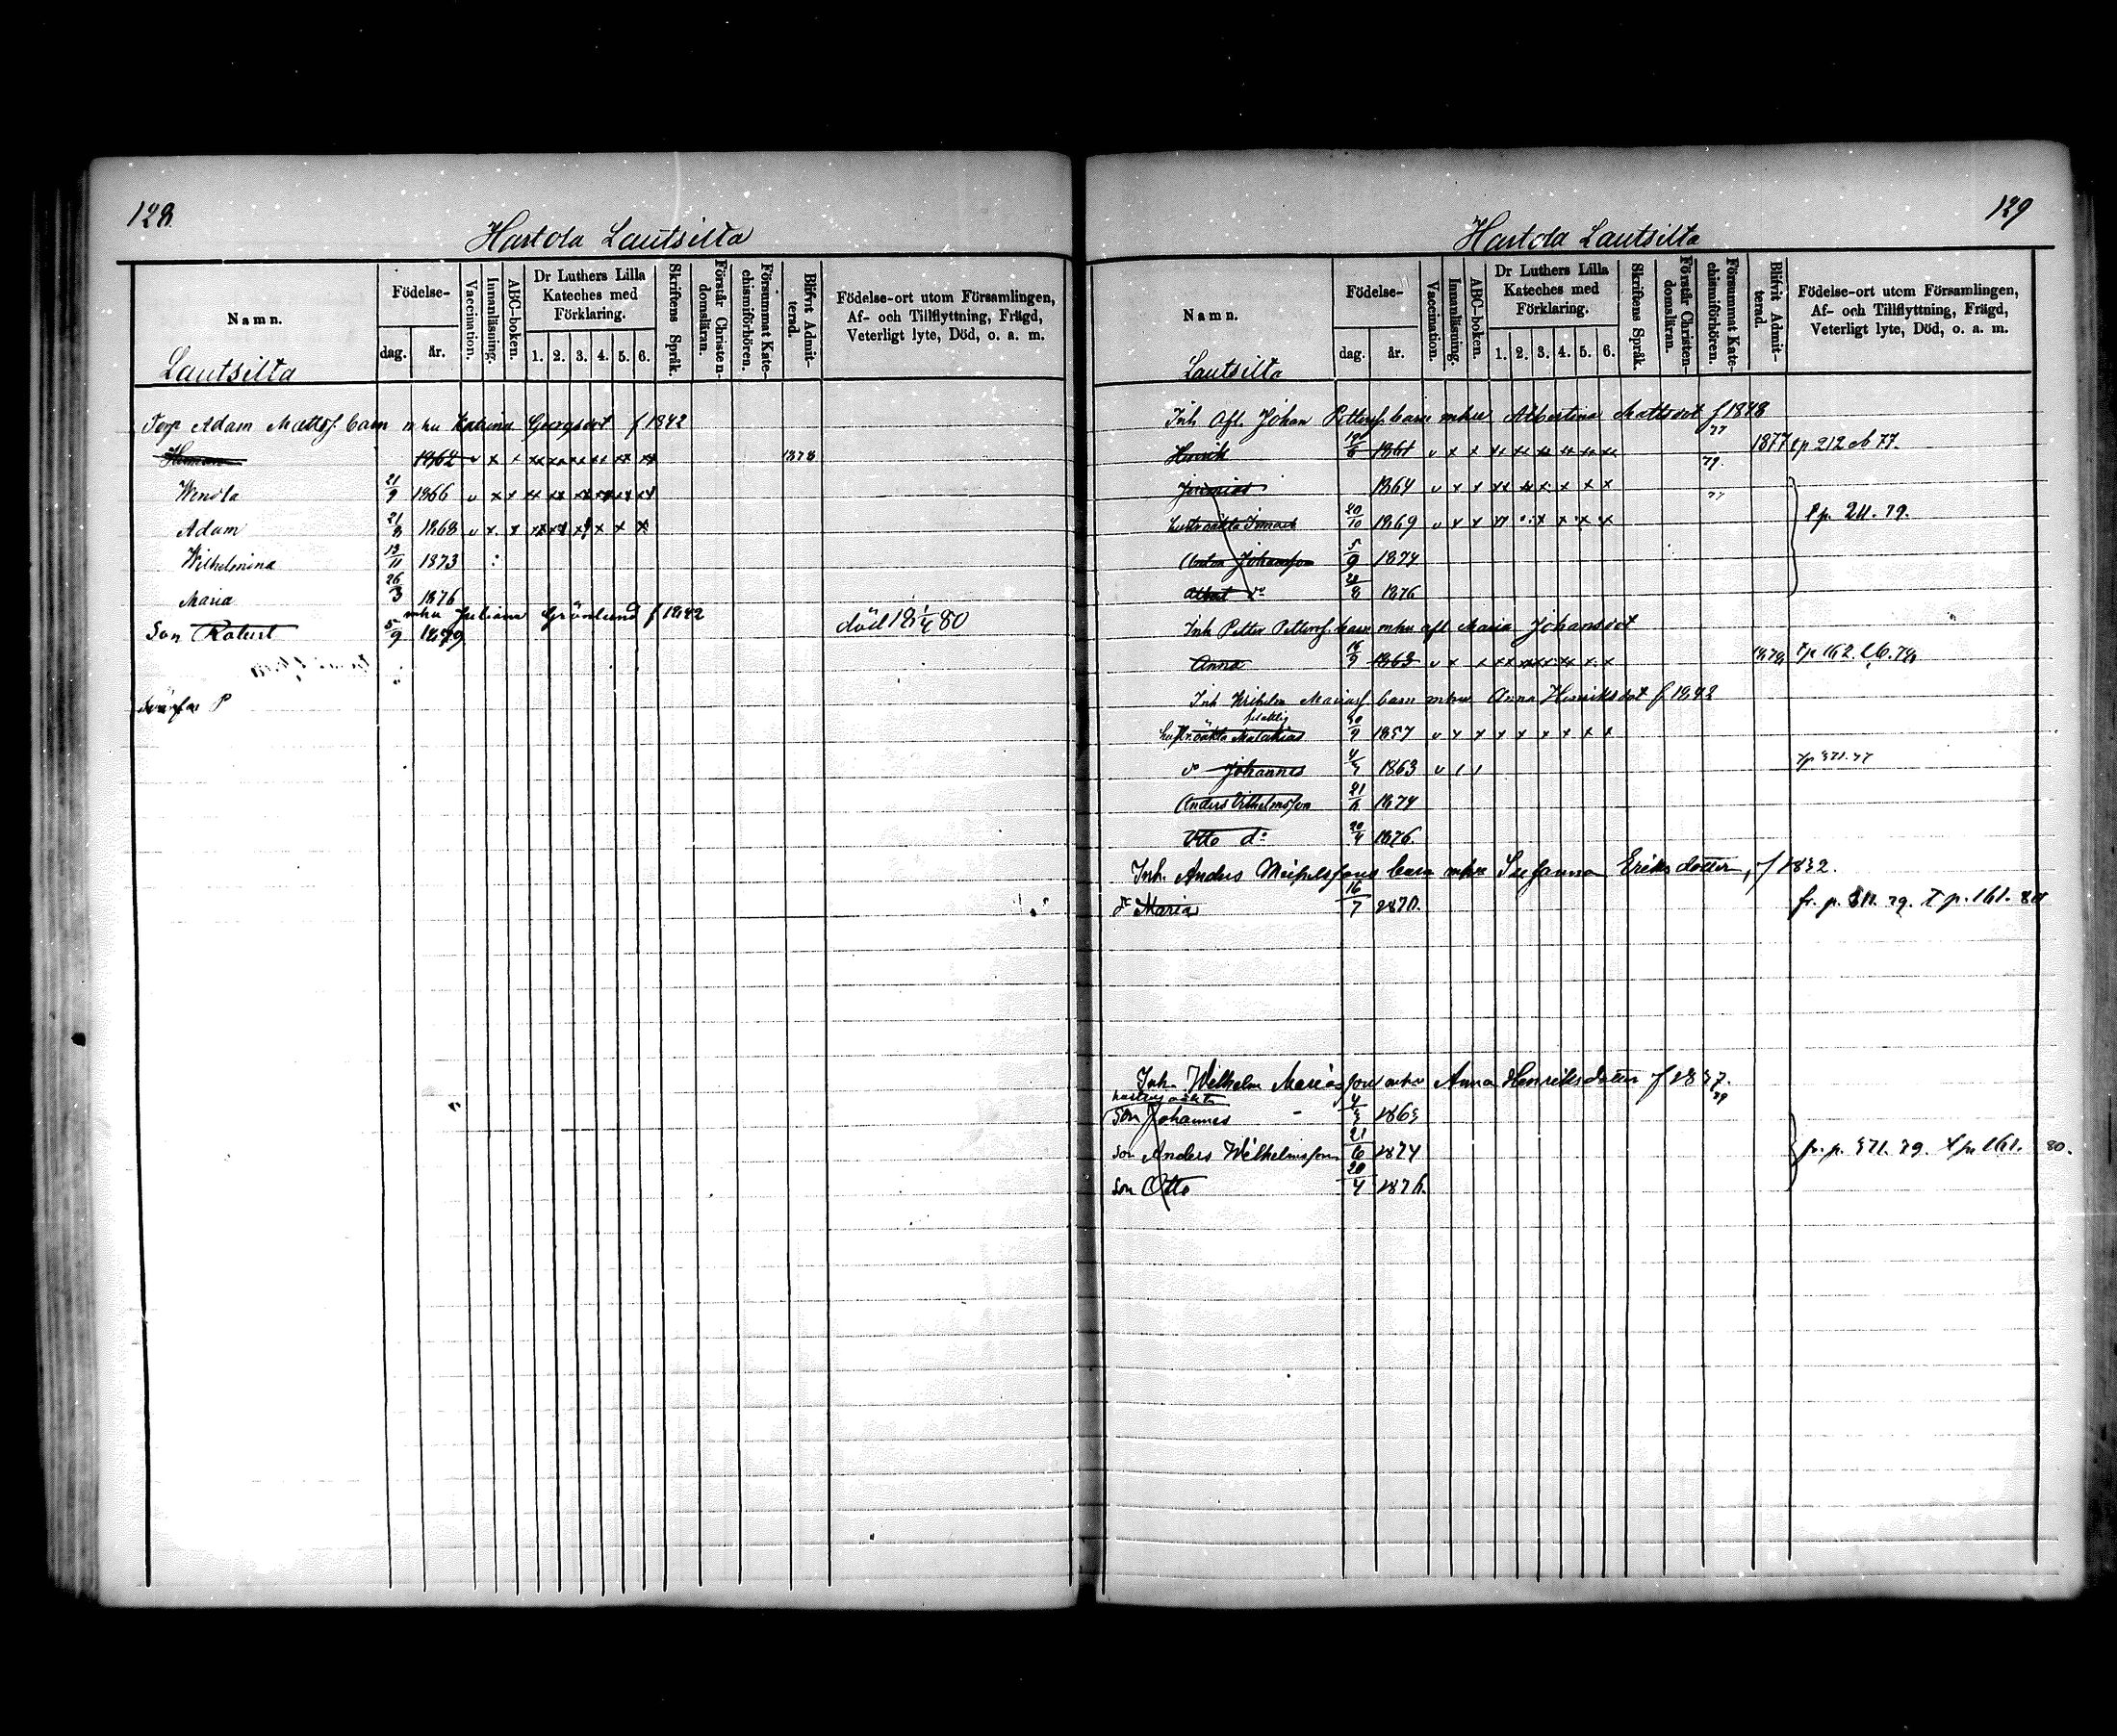 128
Hartola Lautsilta
Namn.
Födelse-
dag.
år.
Vaccination.
Innanläsning.
ABC-boken.
Dr Luthers Lilla Kateches med Förklaring.
1. 2. 3. 4. 5. 6.
Skriftens Språk.
Förstår Christen-domsläran.
Försummat Kate-chismiförhören.
Blifvit Admit-terad.
Födelse-ort utom Församlingen,
Af- och Tillflyttning, Frägd,
Veterligt lyte, Död, o. a. m.
Lautsilta
Torp Adam Mattsf. barn m hu Katrina Georgsdot f 1842
1862 v x x xx xx xx xx xx xx 1878
Wendla 21/9 1866 v x x xx xx xx xx xx xx
Adam 21/8 1868 v x x
Wilhelmina 13/11 1873
Maria 26/3 1876
mhu Juliana Grönlund f 1842
Son Robert 5/9 1879 död 18 1/4 80
129
Hartola Lautsilta
Namn.
Födelse-
dag.
år.
Vaccination.
Innanläsning.
ABC-boken.
Dr Luthers Lilla Kateches med Förklaring.
1. 2. 3. 4. 5. 6.
Skriftens Språk.
Förstår Christen-domsläran.
Försummat Kate-chismiförhören.
Blifvit Admit-terad.
Födelse-ort utom Församlingen,
Af- och Tillflyttning, Frägd,
Veterligt lyte, Död, o. a. m.
Lautsilta
Inh Afl. Johan Pettersf. barn mhu Albertina Mattsdot f 1848
Henrik 1861 v x x 77 1877 tp 212 ob 77.
Jeremias 1864 v x x 79.
20/10 1869 v x x 77 tp. 211. 79.
Anton Johansson 5/9 1874
Albert do 28/8 1876
Inh Petter Pettersf. barn mhu afl Maria Johansdot
Anna 18/9 1863 v x x 1879 tp 162.
Inh Wilhelm Mariasf. barn mhu Anna Henriksdot f 1842
hustr. oäkta Malakias 1857 v x x x x x x x x
do Johannes 4/3 1863 v
Anders Vilhelmsson 21/6 1874
Otto do 20/4 1876.
Inh. Anders Mikelssons barn mhu Susanna Eriksdotter, f 1832.
dr Maria 16/7 1870. fr. p. 311. 79. t p. 161. 80
Inh. Wilhelm Mariasson mhu Anna Henriksdotter f 1837.
hustrus oäkta 79
son Johannes 4/3 1863
son Anders Wilhelmsson 21/6 1874 fr. p. 371. 79. t p 161. 80.
son Otto 20/4 1876.